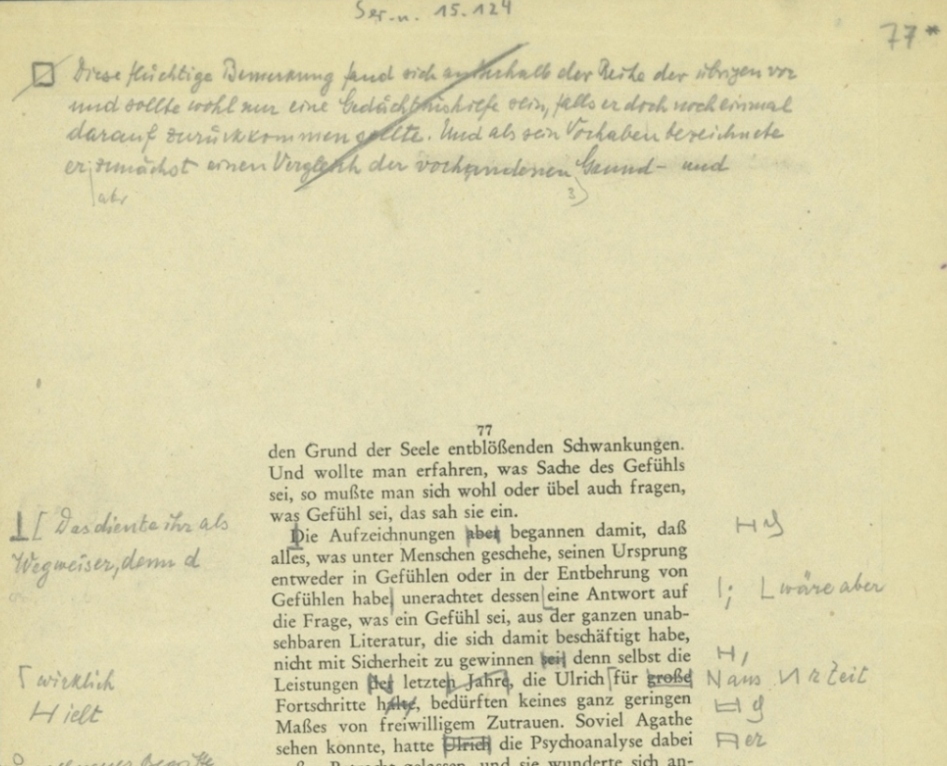 Ser. n. 15.124
77*
Diese flüchtige Bemerkung fand sich außerhalb der Reihe der übrigen vor
und sollte wohl nur eine Gedächtnishilfe sein, falls er doch noch einmal
darauf zurückkommen sollte. Und als sein Vorhaben bezeichnete
er zunächst einen Vergleich der vorhandenen Grund- und
aber
3)
77
den Grund der Seele entblößenden Schwankungen.
Und wollte man erfahren, was Sache des Gefühls
sei, so mußte man sich wohl oder übel auch fragen,
was Gefühl sei, das sah sie ein.
[ Das diente ihr als
Wegweiser, denn d
Die Aufzeichnungen aber begannen damit, daß
alles, was unter Menschen geschehe, seinen Ursprung
entweder in Gefühlen oder in der Entbehrung von
Gefühlen habe unerachtet dessen eine Antwort auf
; wäre aber
die Frage, was ein Gefühl sei, aus der ganzen unab-
sehbaren Literatur, die sich damit beschäftigt habe,
nicht mit Sicherheit zu gewinnen sei denn selbst die
,
wirklich
Leistungen der letzten Jahre, die Ulrich für große
aus r Zeit
ielt
Fortschritte halte, bedürften keines ganz geringen
Maßes von freiwilligem Zutrauen. Soviel Agathe
sehen konnte, hatte Ulrich die Psychoanalyse dabei
er
außer Betracht gelassen, und sie wunderte sich an-